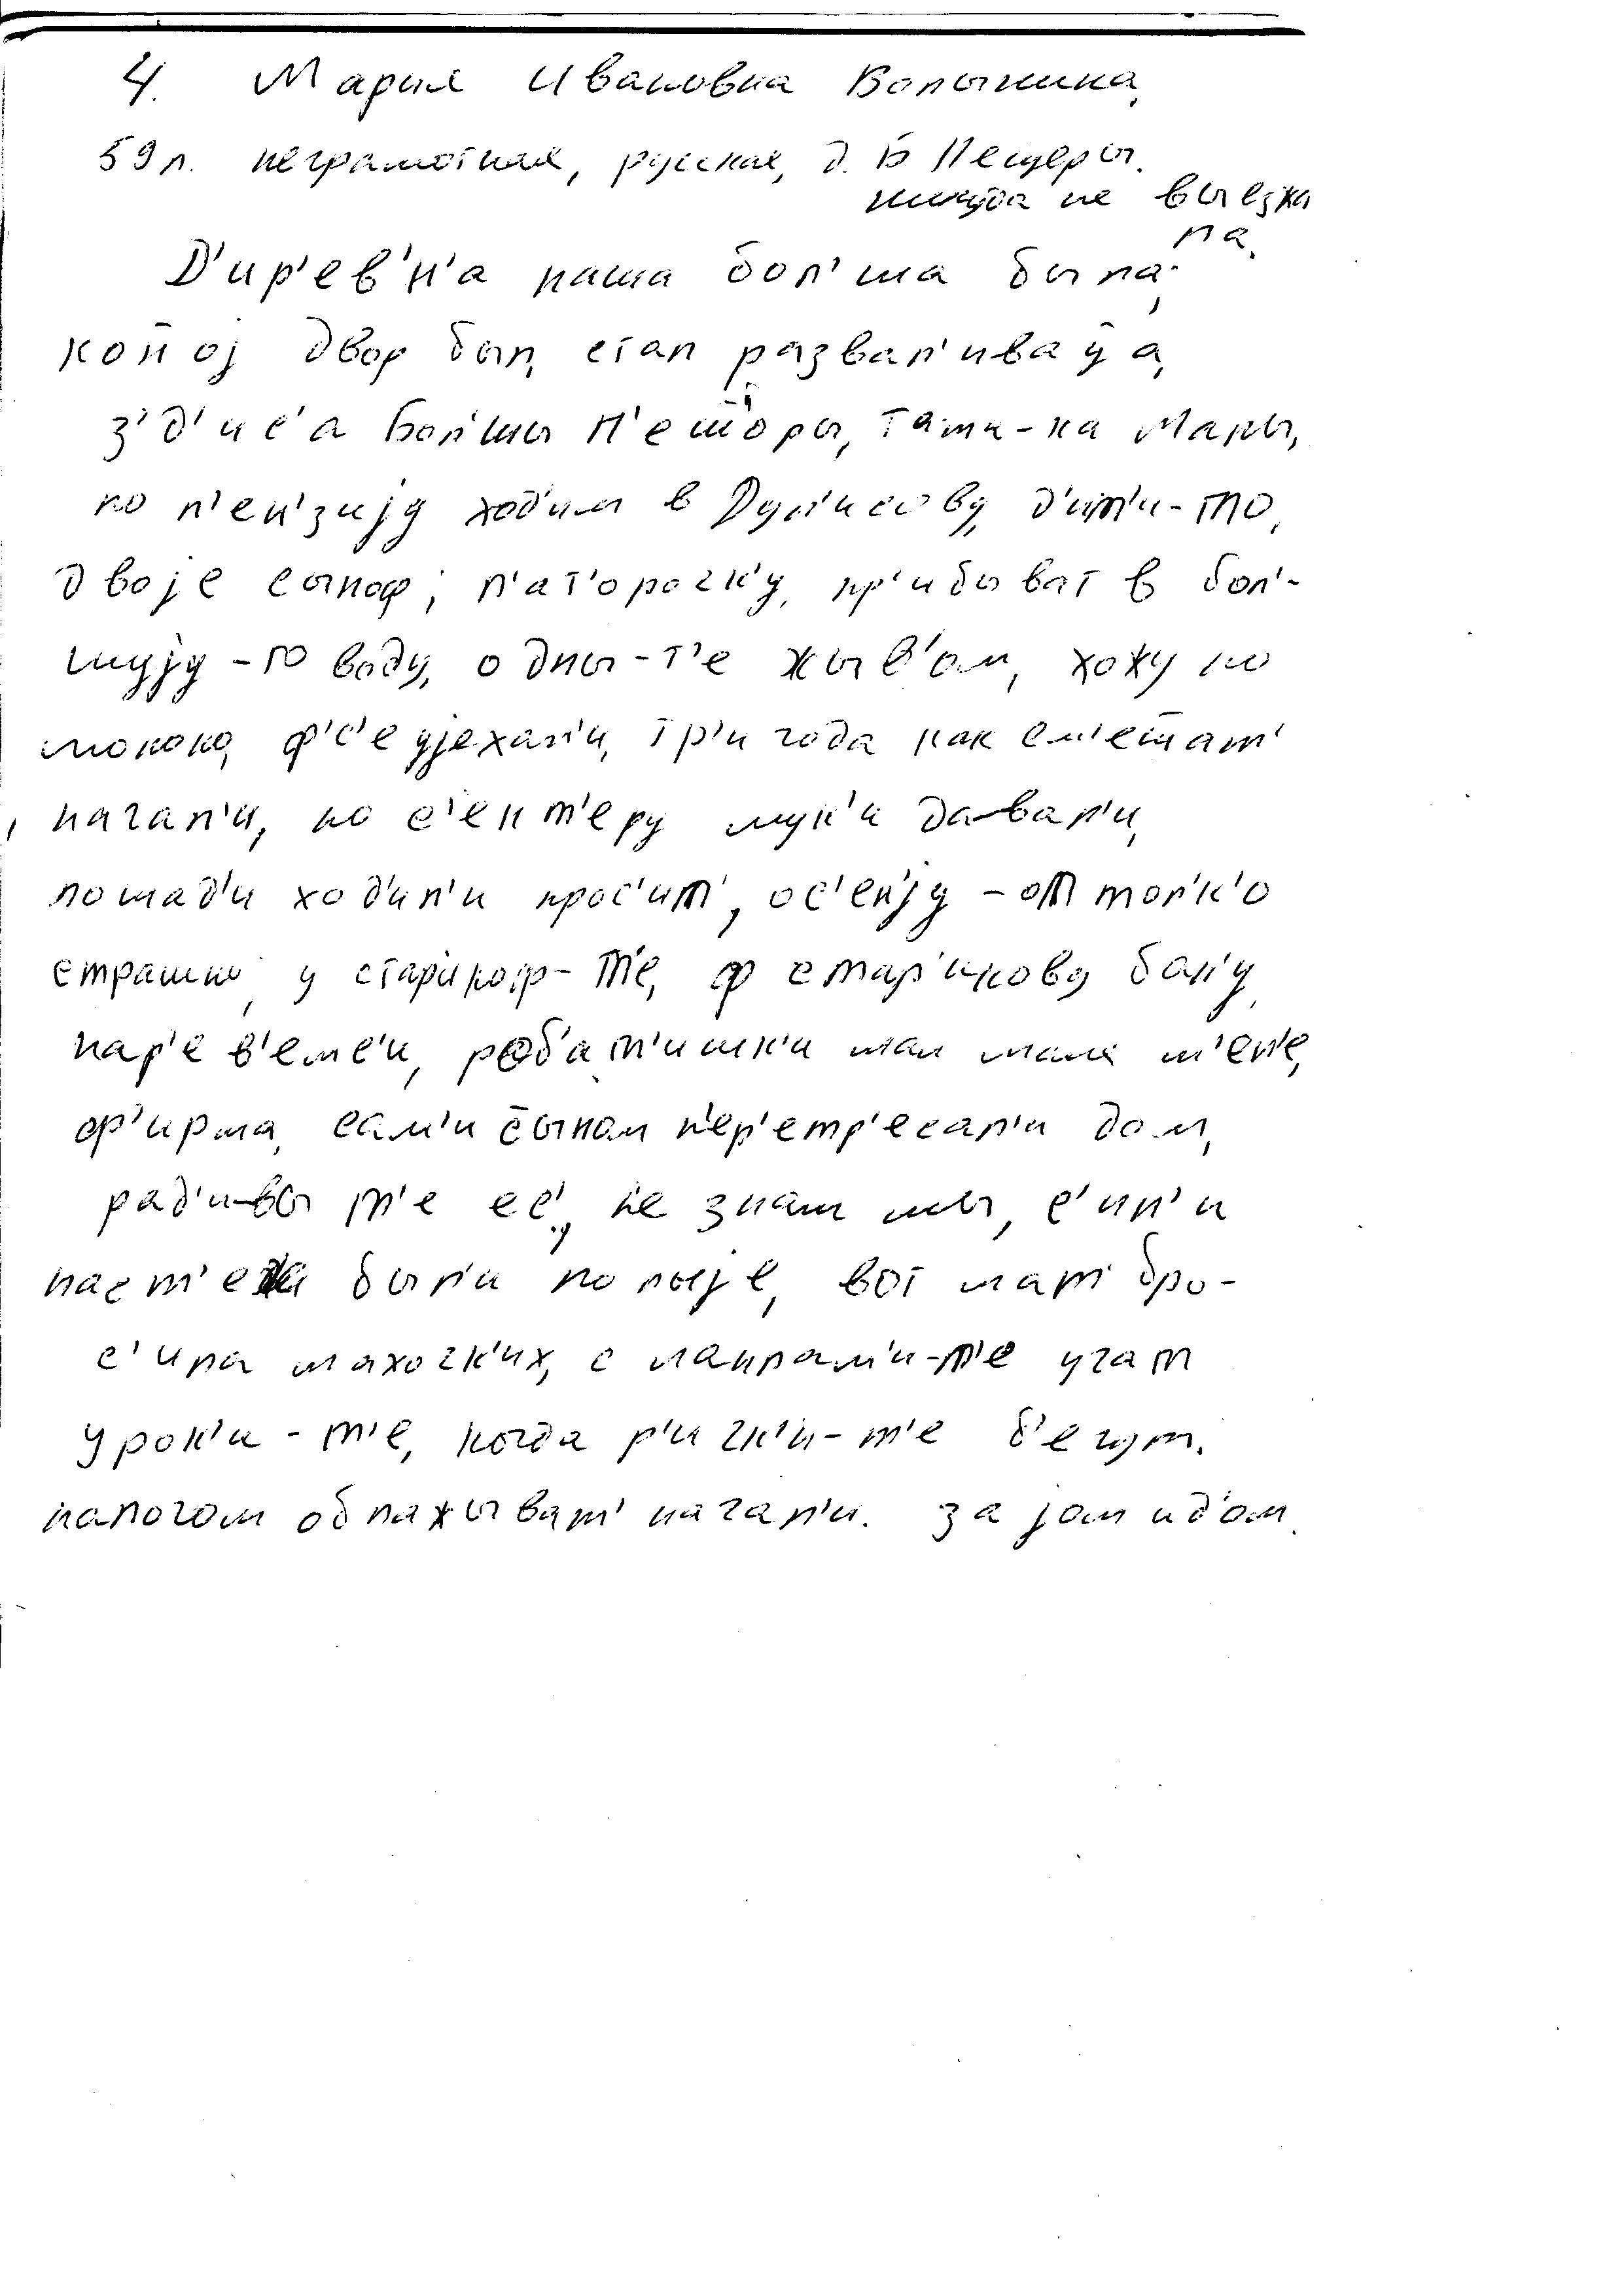 4. Мария Ивановна Волынкина,
59 л. неграмотная, русская, д. Б Пещеры.
никуда не выезжа
ла.
Д'ир'ев'н'а наша бол'ша была,
кон'ој двор был, стал развал'ива
з'д'ис'а Бол'шы П'ешоры, там-на Малы,
по п'ен'з'ију ход'им в д'ит'и-то,
двоје сыноф, п'ат'орочк'у, пр'ибыват в бол'-
шују-то воду, одны-т'е жыв'ом, хожу по
молоко, ф'с'е ујехал'и, тр'и года как см'ешат'
начал'и, по с'ент'еру мук'и давал'и,
лошад'и ход'ил'и прос'ит', ос'ен'ју-от тол'к'о
страшно, у стар'икоф-т'е, ф стар'икову бан'у,
нар'ев'емс'и, роб'ат'ишк'и мал мала м'ен'е,
ф'ирма, сам'и сыном п'ер'етр'есал'и дом,
рад'ивы т'е ес', не знам мы, с'ил'и
пас были по полје, вот мат' бро-
с'ила махочк'их, с лампам'и-т'е учат
урок'и-т'е, когда р'ичк'и-т'е б'егут.
налогом облажыват' начал'и. за јом ид'ом.